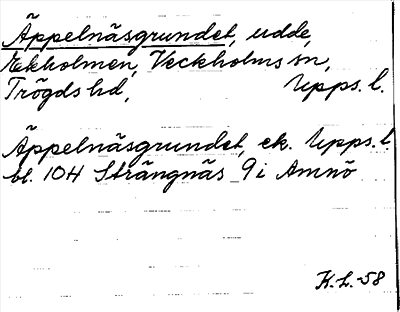 Äppelnäsgrundet, udde,
Ekholmen, Veckholms sn,
Trögds hd, Upps. l.
Äppelnäsgrundet, ek. Upps. l.
bl. 104 Strängnäs 9i Amnö
K.L.-58